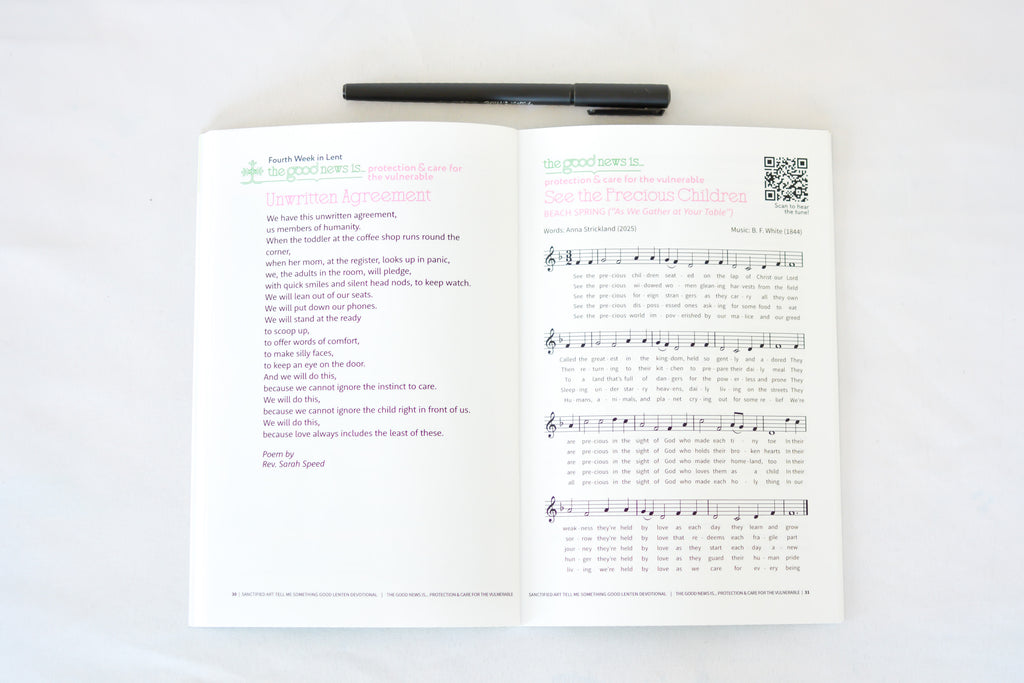 Fourth Week in Lent
the good news is...
protection & care for
the vulnerable
Unwritten Agreement
We have this unwritten agreement,
us members of humanity.
When the toddler at the coffee shop runs round the
corner,
when her mom, at the register, looks up in panic,
we, the adults in the room, will pledge,
with quick smiles and silent head nods, to keep watch.
We will lean out of our seats.
We will put down our phones.
We will stand at the ready
to scoop up,
to offer words of comfort,
to make silly faces,
to keep an eye on the door.
And we will do this,
because we cannot ignore the instinct to care.
We will do this,
because we cannot ignore the child right in front of us.
We will do this,
because love always includes the least of these.
Poem by
Rev. Sarah Speed
30 | SANCTIFIED ART TELL ME SOMETHING GOOD LENTEN DEVOTIONAL | THE GOOD NEWS IS... PROTECTION & CARE FOR THE VULNERABLE
the good news is...
protection & care for the vulnerable
See the Precious Children
BEACH SPRING ("As We Gather at Your Table")
Scan to hear
the tune!
Words: Anna Strickland (2025) Music: B. F. White (1844)
See the pre-cious chil-dren seat-ed on the lap of Christ our Lord
See the pre-cious wi-dowed wo-men glean-ing har-vests from the field
See the pre-cious for-eign stran-gers as they car-ry all they own
See the pre-cious dis-poss-essed ones ask-ing for some food to eat
See the pre-cious world im-pov-erished by our ma-lice and our greed
Called the great-est in the king-dom, held so gent-ly and a-dored They
Then re-turn-ing to their kit-chen to pre-pare their dai-ly meal They
To a land that's full of dan-gers for the pow-er-less and prone They
Sleep-ing un-der star-ry heav-ens, dai-ly liv-ing on the streets They
Hu-mans, a-ni-mals, and pla-net cry-ing out for some re-lief We're
are pre-cious in the sight of God who made each ti-ny toe In their
are pre-cious in the sight of God who holds their bro-ken hearts In their
are pre-cious in the sight of God who made their home-land, too In their
are pre-cious in the sight of God who loves them as a child In their
all pre-cious in the sight of God who made each ho-ly thing In our
weak-ness they're held by love as each day they learn and grow
sor-row they're held by love that re-deems each fra-gile part
jour-ney they're held by love as they start each day a-new
hun-ger they're held by love as they guard their hu-man pride
liv-ing we're held by love as we care for ev-ery being
SANCTIFIED ART TELL ME SOMETHING GOOD LENTEN DEVOTIONAL | THE GOOD NEWS IS... PROTECTION & CARE FOR THE VULNERABLE | 31